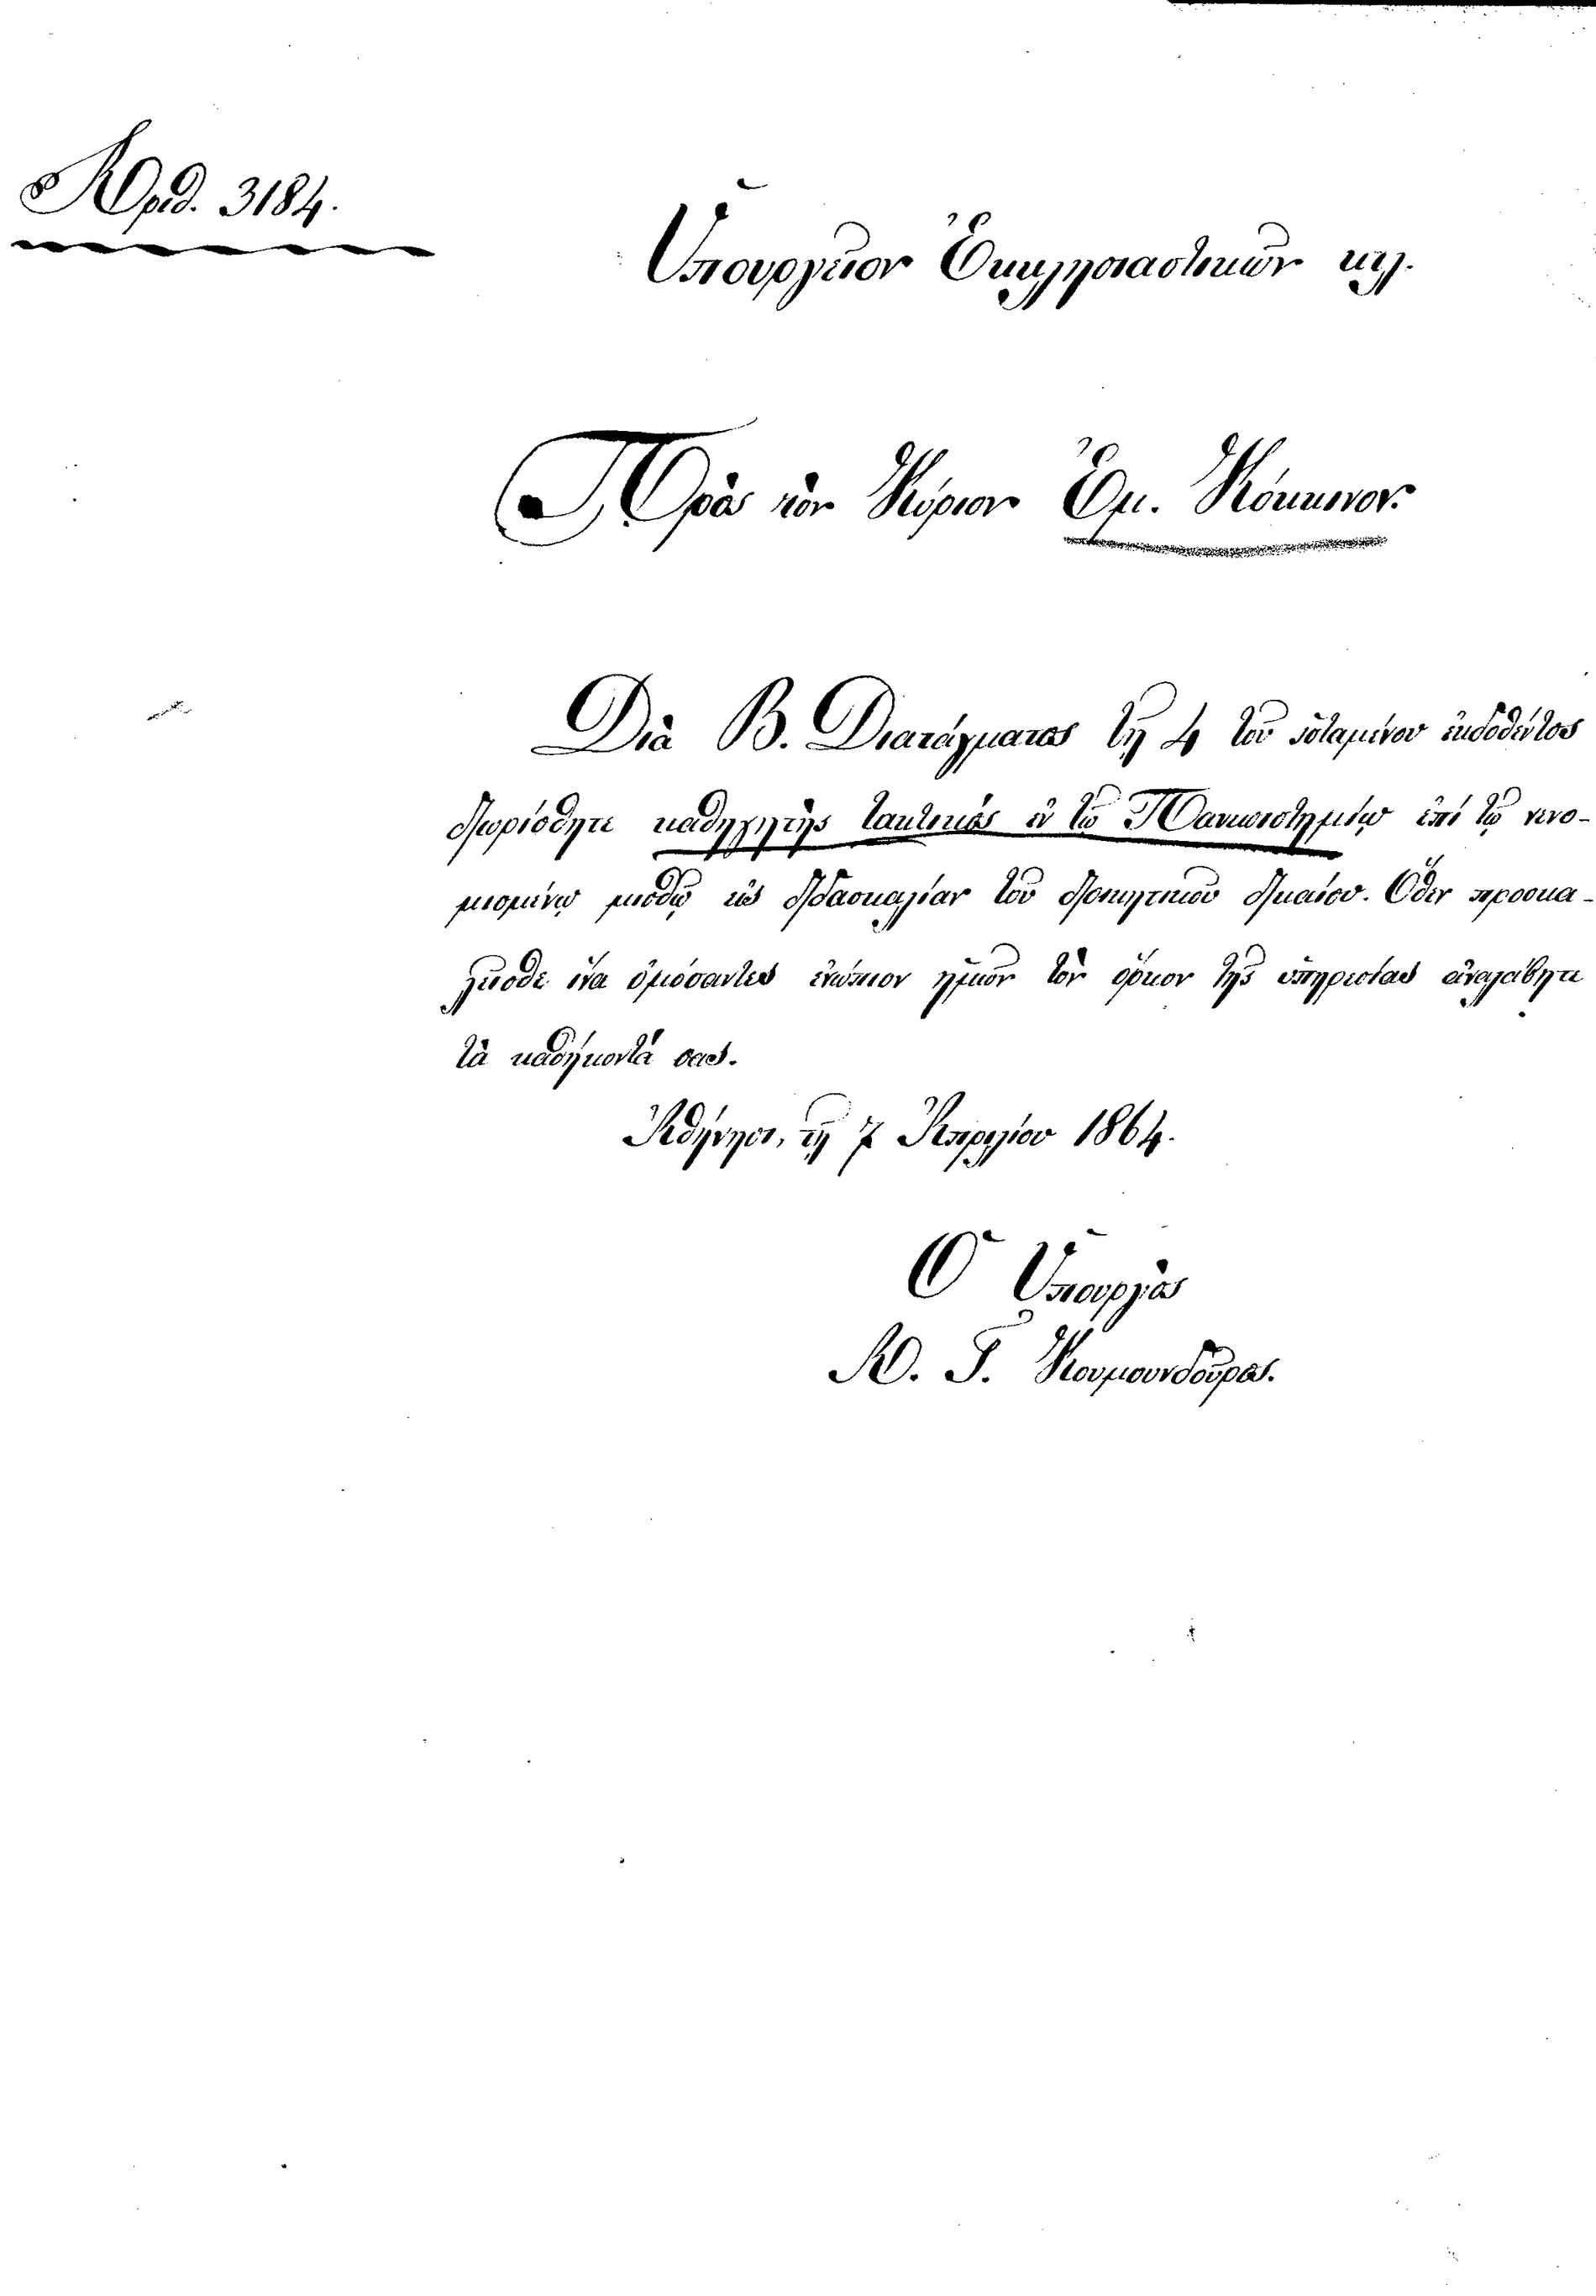 Ἀριθ. 3184.
Ὑπουργεῖον Ἐκκλησιαστικῶν κτλ.
Πρὸς τὸν Κύριον Ἐμ. Κόκκινον.
Διὰ Β. Διατάγματος τῇ 4 τοῦ ἱσταμένου ἐκδοθέντος
διωρίσθητε καθηγητὴς τακτικὸς ἐν τῷ Πανεπιστημίῳ ἐπὶ τῷ νενο-
μισμένῳ μισθῷ εἰς διδασκαλίαν τοῦ διοικητικοῦ δικαίου. Ὅθεν προσκα-
λεῖσθε ἵνα ὀμόσαντες ἐνώπιον ἡμῶν τὸν ὅρκον τῆς ὑπηρεσίας ἀναλάβητε
τὰ καθήκοντά σας.
Ἀθήνησι, τῇ 7 Ἀπριλίου 1864.
Ὁ Ὑπουργὸς
Α. Γ. Κουμουνδοῦρος.